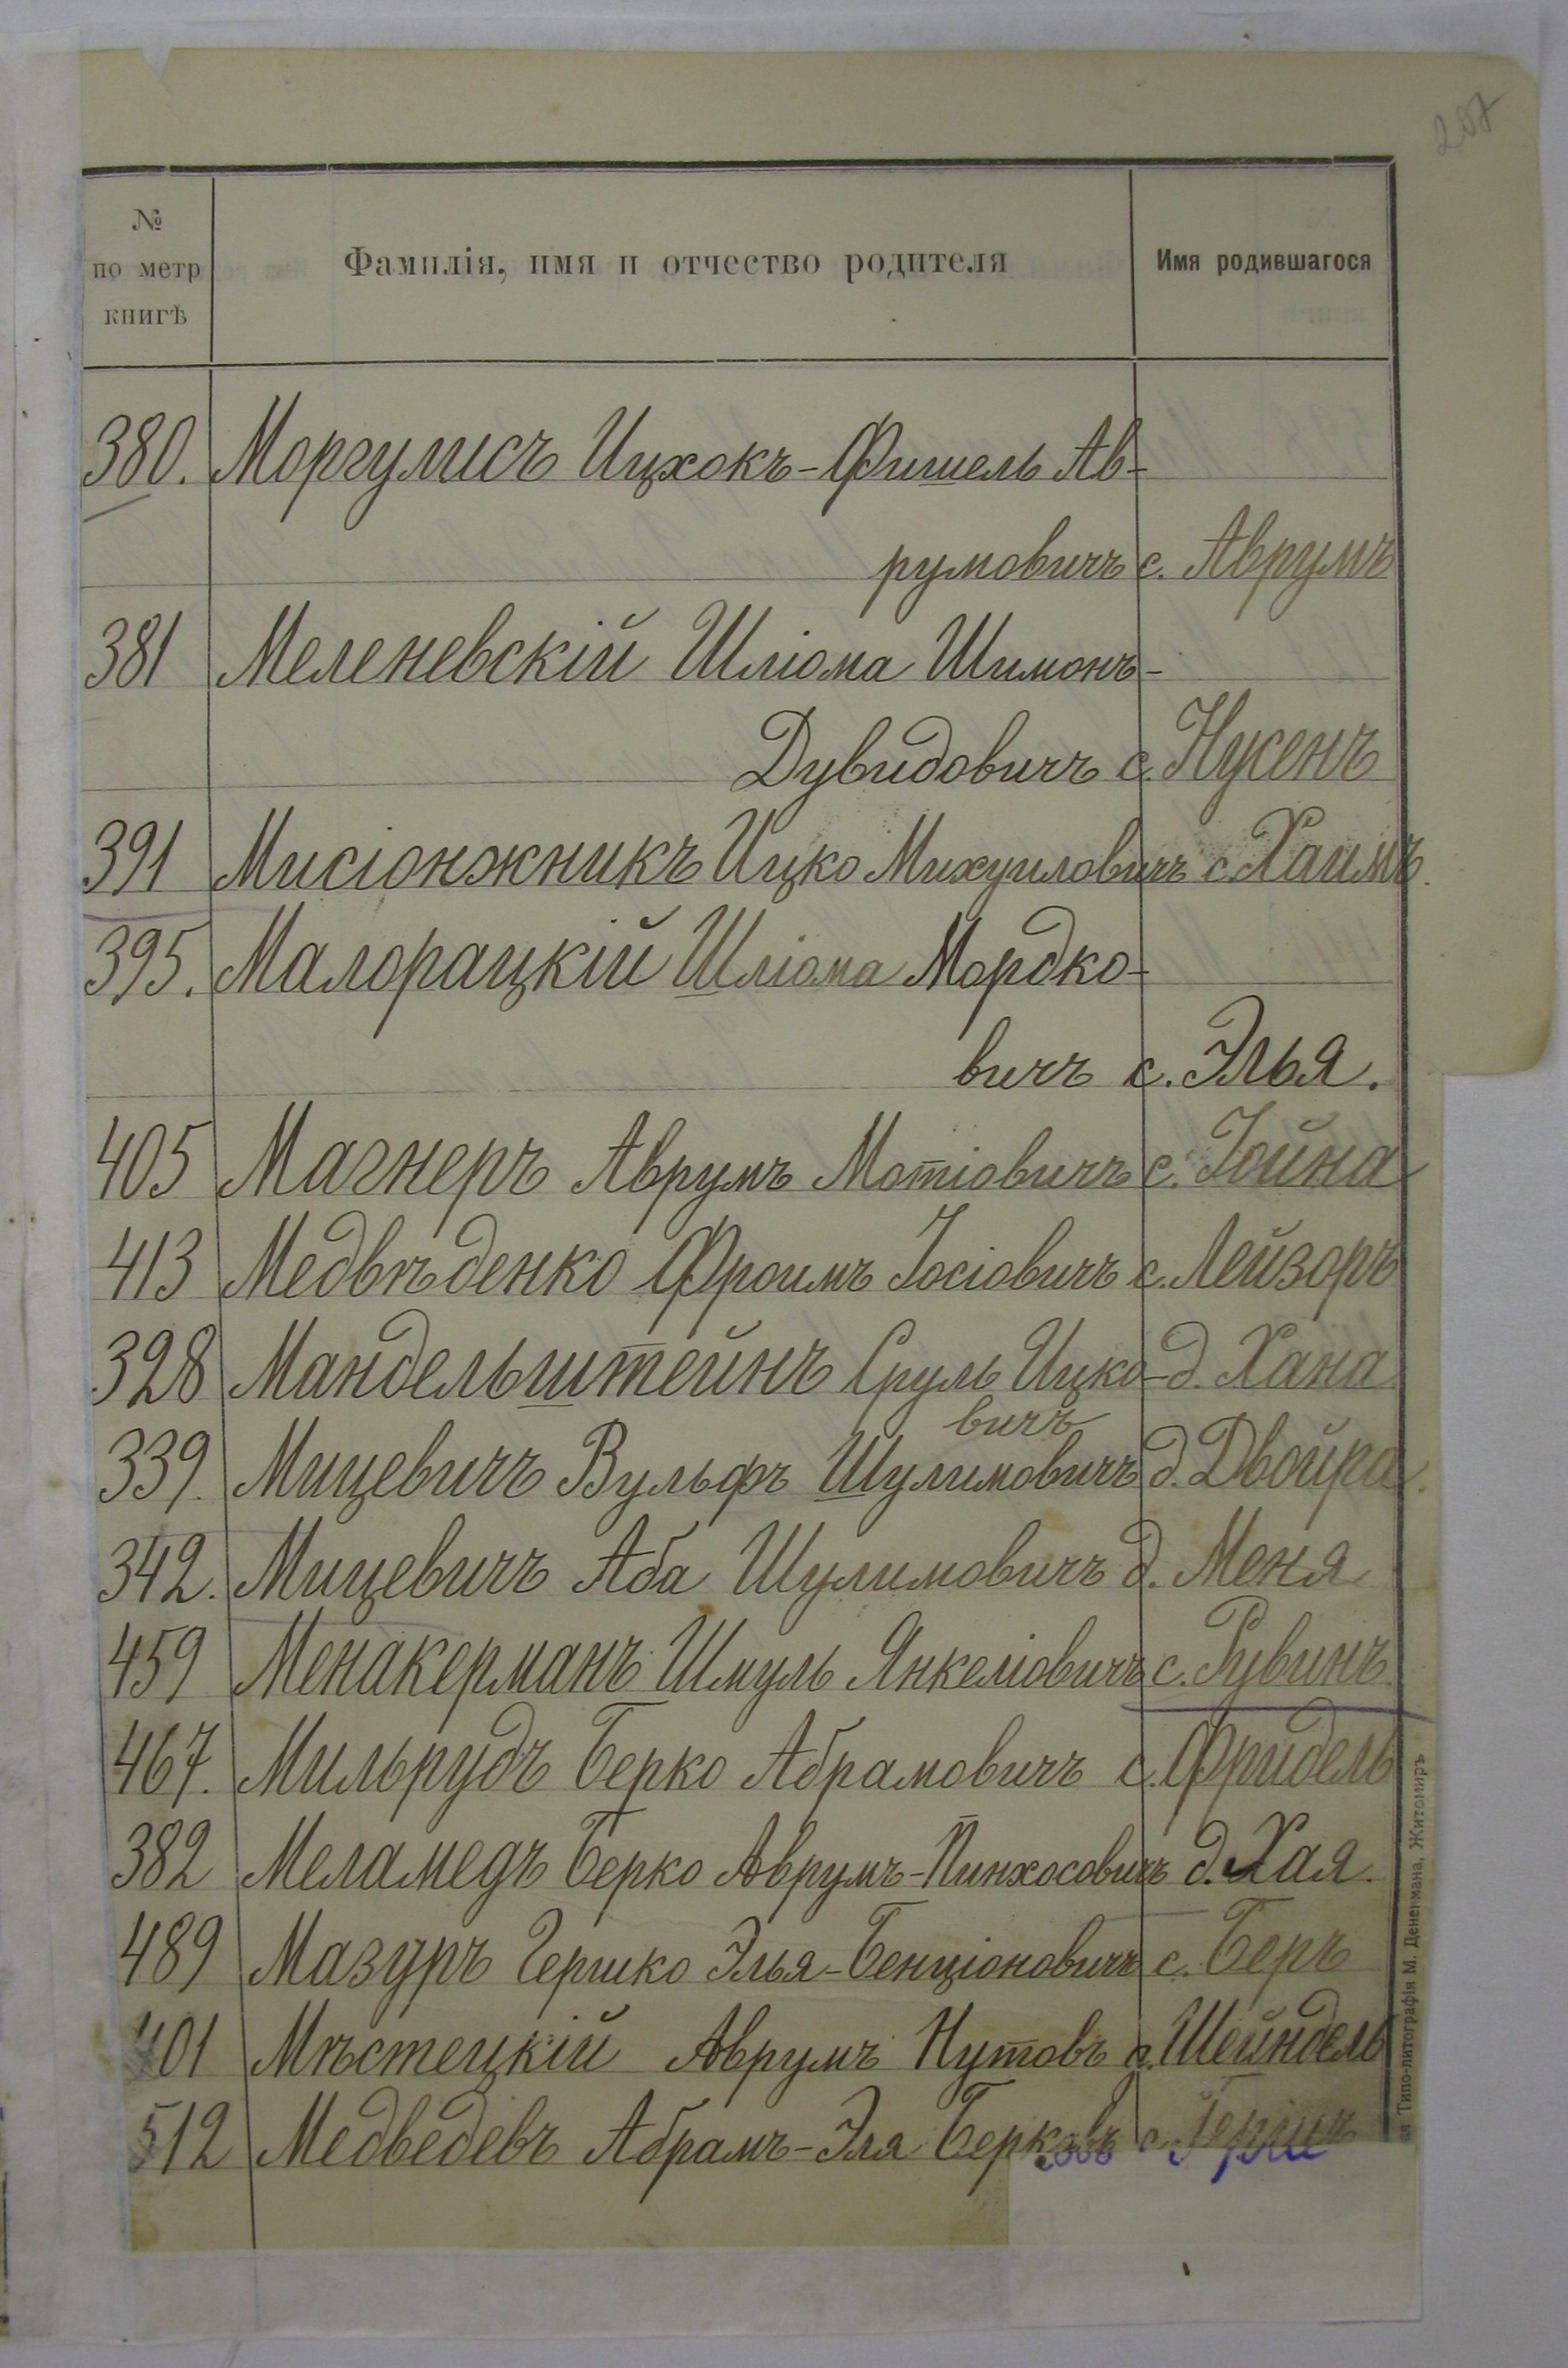 207
№ по метр книгѣ | Фамилія, имя и отчество родителя | Имя родившагося
380. Моргулисъ Ицхокъ-Фишель Ав-
румовичъ с. Аврумъ
381 Меленевскій Шліома Шимонъ-
Дувидовичъ с. Нусенъ
391 Мисіонжникъ Ицко Михуиловичъ с. Хаимъ.
395. Малорацкій Шліома Мордко-
вичъ с. Элья.
405 Магнеръ Аврумъ Мотіовичъ с. Іойна
413 Медвѣденко Фроимъ Іосіовичъ с. Лейзоръ
328 Мандельштейнъ Сруль Ицко- д. Хана
вичъ
339. Мицевичъ Вульфъ Шулимовичъ д. Двойра.
342. Мицевичъ Аба Шулимовичъ д. Меня
459 Менакерманъ Шмуль Янкеліовичъ с. Рувинъ.
467. Мильрудъ Берко Абрамовичъ с. Фридель
382 Меламедъ Берко Аврумъ-Пинхосовичъ д. Хая.
489 Мазуръ Гершко Элья-Бенціоновичъ с. Беръ
401 Мѣстецкій Аврумъ Нутовъ д. Шейндель
512 Медведевъ Абрамъ-Эля Берковъ с. Гершъ
Типо-литографія М. Дененмана, Житомиръ